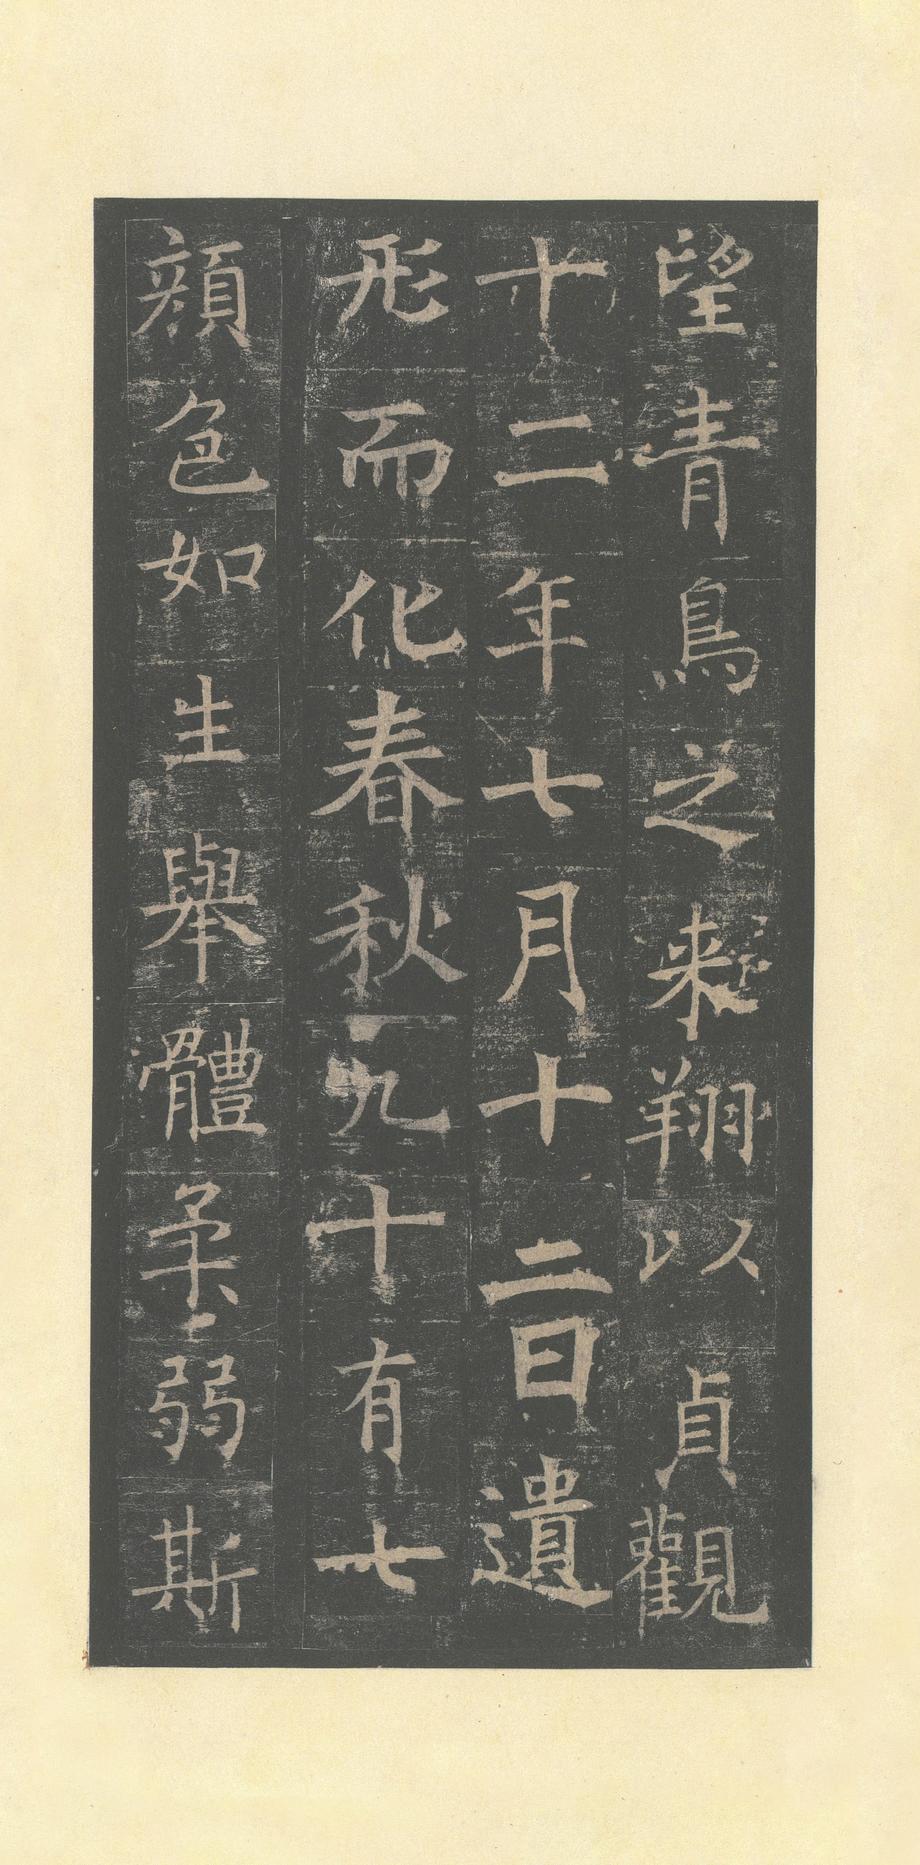 望青鳥之來翔以貞觀
十二年七月十二日遺
形而化春秋九十有七
顔色如生舉體柔弱斯